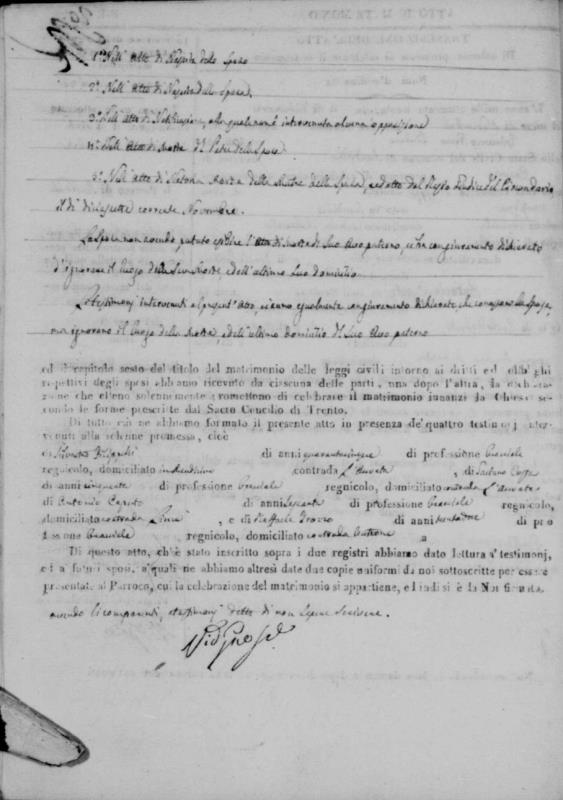 1º Nell' Atto di Nascita dello Sposo
2º Nell' Atto di Nascita della Sposa
3º Nell' atto di Notificazione, alla quale non è intervenuta alcuna opposizione
4º Nell' Atto di Morte di Padre dello Sposo
5º Nell' atto di Morte della Madre della Sposa, redatto dal Regio Giudice del Circondario
il dì diciassette corrente Novembre.
La Sposa non avendo potuto esibire l'Atto di morte di Suo Avo paterno, ci ha con giuramento dichiarato
d'ignorare il luogo della Sua Morte e dell'ultimo Suo domicilio.
I testimonj intervenuti al present' Atto, ci anno egualmente con giuramento dichiarato, che conoscono la Sposa,
ma ignorano il luogo della Morte, e dell'ultimo domicilio di Suo Avo paterno
ed il capitolo sesto del titolo del matrimonio delle leggi civili intorno ai dritti ed obblighi
rispettivi degli sposi abbiamo ricevuto da ciascuna delle parti, una dopo l'altra, la dichiara-
zione che elleno solennemente promettono di celebrare il matrimonio innanzi la Chiesa se-
condo le forme prescritte dal Sacro Concilio di Trento.
Di tutto ciò ne abbiamo formato il presente atto in presenza de' quattro testimonj inter-
venuti alla solenne promessa, cioè
di Silvestro di anni quarantacinque di professione bracciale
regnicolo, domiciliato contrada, di Gaetano
di anni cinquanta di professione bracciale regnicolo, domiciliato contrada
di Antonio Caputo di anni sessanta di professione bracciale regnicolo,
domiciliato contrada, e di Raffaele di anni di pro
fessione bracciale, regnicolo, domiciliato contrada
Di questo atto, ch'è stato inscritto sopra i due registri abbiamo dato lettura a' testimonj,
ed a' futuri sposi, a' quali ne abbiamo altresì date due copie uniformi da noi sottoscritte per essere
presentate al Parroco, cui la celebrazione del matrimonio si appartiene, e indi si è da Noi firmato
avendo li comparenti, e testimonj detto di non Sapere Scrivere.